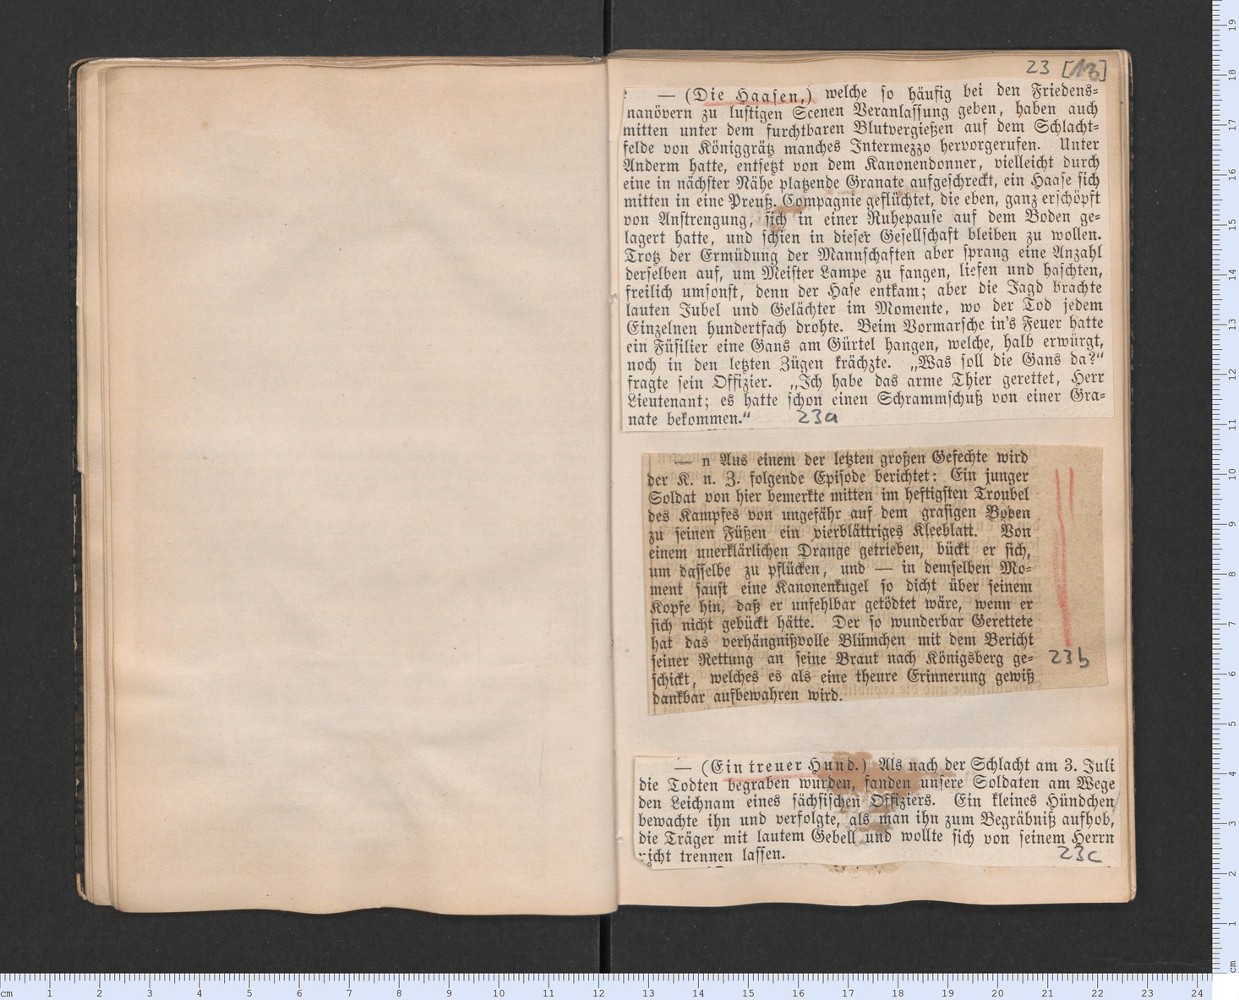 23 [13]
— (Die Haasen,) welche so häufig bei den Friedens-
manövern zu lustigen Scenen Veranlassung geben, haben auch
mitten unter dem furchtbaren Blutvergießen auf dem Schlacht-
felde von Königgrätz manches Intermezzo hervorgerufen. Unter
Anderm hatte, entsetzt von dem Kanonendonner, vielleicht durch
eine in nächster Nähe platzende Granate aufgeschreckt, ein Haase sich
mitten in eine Preuß. Compagnie geflüchtet, die eben, ganz erschöpft
von Anstrengung, sich in einer Ruhepause auf dem Boden ge-
lagert hatte, und schien in dieser Gesellschaft bleiben zu wollen.
Trotz der Ermüdung der Mannschaften aber sprang eine Anzahl
derselben auf, um Meister Lampe zu fangen, liefen und haschten,
freilich umsonst, denn der Hase entkam; aber die Jagd brachte
lauten Jubel und Gelächter im Momente, wo der Tod jedem
Einzelnen hundertfach drohte. Beim Vormarsche in's Feuer hatte
ein Füsilier eine Gans am Gürtel hangen, welche, halb erwürgt,
noch in den letzten Zügen krächzte. „Was soll die Gans da?“
fragte sein Offizier. „Ich habe das arme Thier gerettet, Herr
Lieutenant; es hatte schon einen Schrammschuß von einer Gra-
nate bekommen.“ 23a
— n Aus einem der letzten großen Gefechte wird
der K. n. Z. folgende Episode berichtet: Ein junger
Soldat von hier bemerkte mitten im heftigsten Troubel
des Kampfes von ungefähr auf dem grasigen Boden
zu seinen Füßen ein vierblättriges Kleeblatt. Von
einem unerklärlichen Drange getrieben, bückt er sich,
um dasselbe zu pflücken, und — in demselben Mo-
ment saust eine Kanonenkugel so dicht über seinem
Kopfe hin, daß er unfehlbar getödtet wäre, wenn er
sich nicht gebückt hätte. Der so wunderbar Gerettete
hat das verhängnißvolle Blümchen mit dem Bericht
seiner Rettung an seine Braut nach Königsberg ge-
schickt, welches es als eine theure Erinnerung gewiß
dankbar aufbewahren wird.
23b
— (Ein treuer Hund.) Als nach der Schlacht am 3. Juli
die Todten begraben wurden, fanden unsere Soldaten am Wege
den Leichnam eines sächsischen Offiziers. Ein kleines Hündchen
bewachte ihn und verfolgte, als man ihn zum Begräbniß aufhob,
die Träger mit lautem Gebell und wollte sich von seinem Herrn
nicht trennen lassen. 23c
cm 1 2 3 4 5 6 7 8 9 10 11 12 13 14 15 16 17 18 19 20 21 22 23 24
cm 1 2 3 4 5 6 7 8 9 10 11 12 13 14 15 16 17 18 19